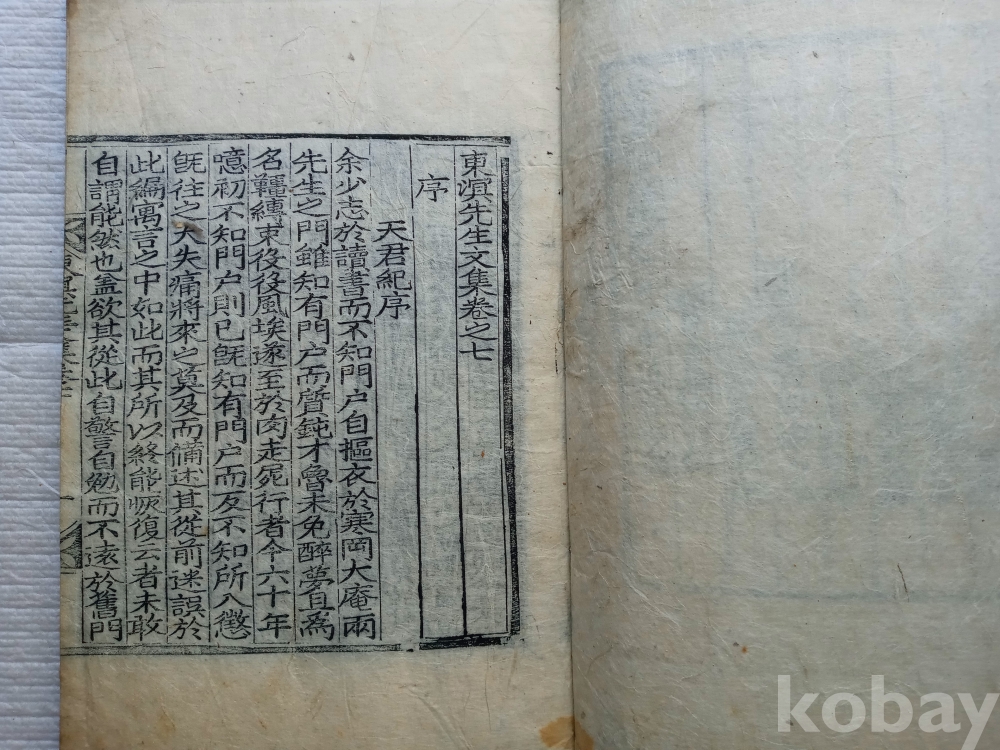 東溟先生文集卷之七
序
天君紀序
余少志於讀書而不知門户自摳衣於寒岡大庵兩
先生之門雖知有門户而質鈍才魯未免醉夢且爲
名韁縛束役役風埃遂至於肉走屍行者今六十年
噫初不知門户則已旣知有門户而反不知所入懲
旣往之大失痛將來之莫及而備述其從前迷誤於
此編寓言之中如此而其所以終能恢復云者未敢
自謂能然也盖欲其從此自警自勉而不遠於舊門
kobay